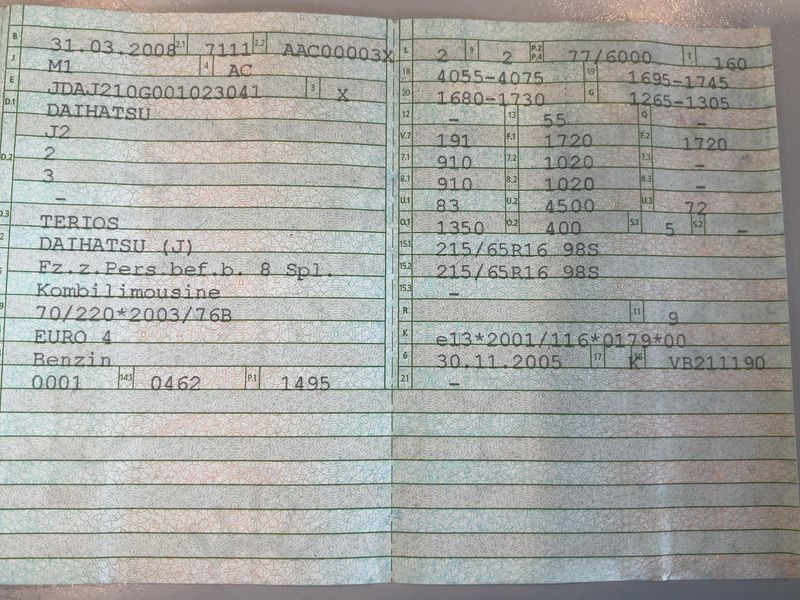 B 31.03.2008 2.1 7111 2.2 AAC00003X
J M1 4 AC
E JDAJ210G001023041 3 X
D.1 DAIHATSU
J2
D.2 2
3
-
D.3 TERIOS
2 DAIHATSU (J)
Fz.z.Pers.bef.b. 8 Spl.
Kombilimousine
9 70/220*2003/76B
EURO 4
Benzin
0001 14.1 0462 P.1 1495
L 2 9 2 P.2 P.4 77/6000 T 160
18 4055-4075 19 1695-1745
20 1680-1730 G 1265-1305
12 - 13 55 Q -
V.7 191 F.1 1720 F.2 1720
7.1 910 7.2 1020 7.3 -
8.1 910 8.2 1020 8.3 -
U.1 83 U.2 4500 U.3 72
O.1 1350 O.2 400 S.1 5 S.2 -
15.1 215/65R16 98S
15.2 215/65R16 98S
15.3 -
R 11 9
K e13*2001/116*0179*00
6 30.11.2005 17 K 16 VB211190
21 -